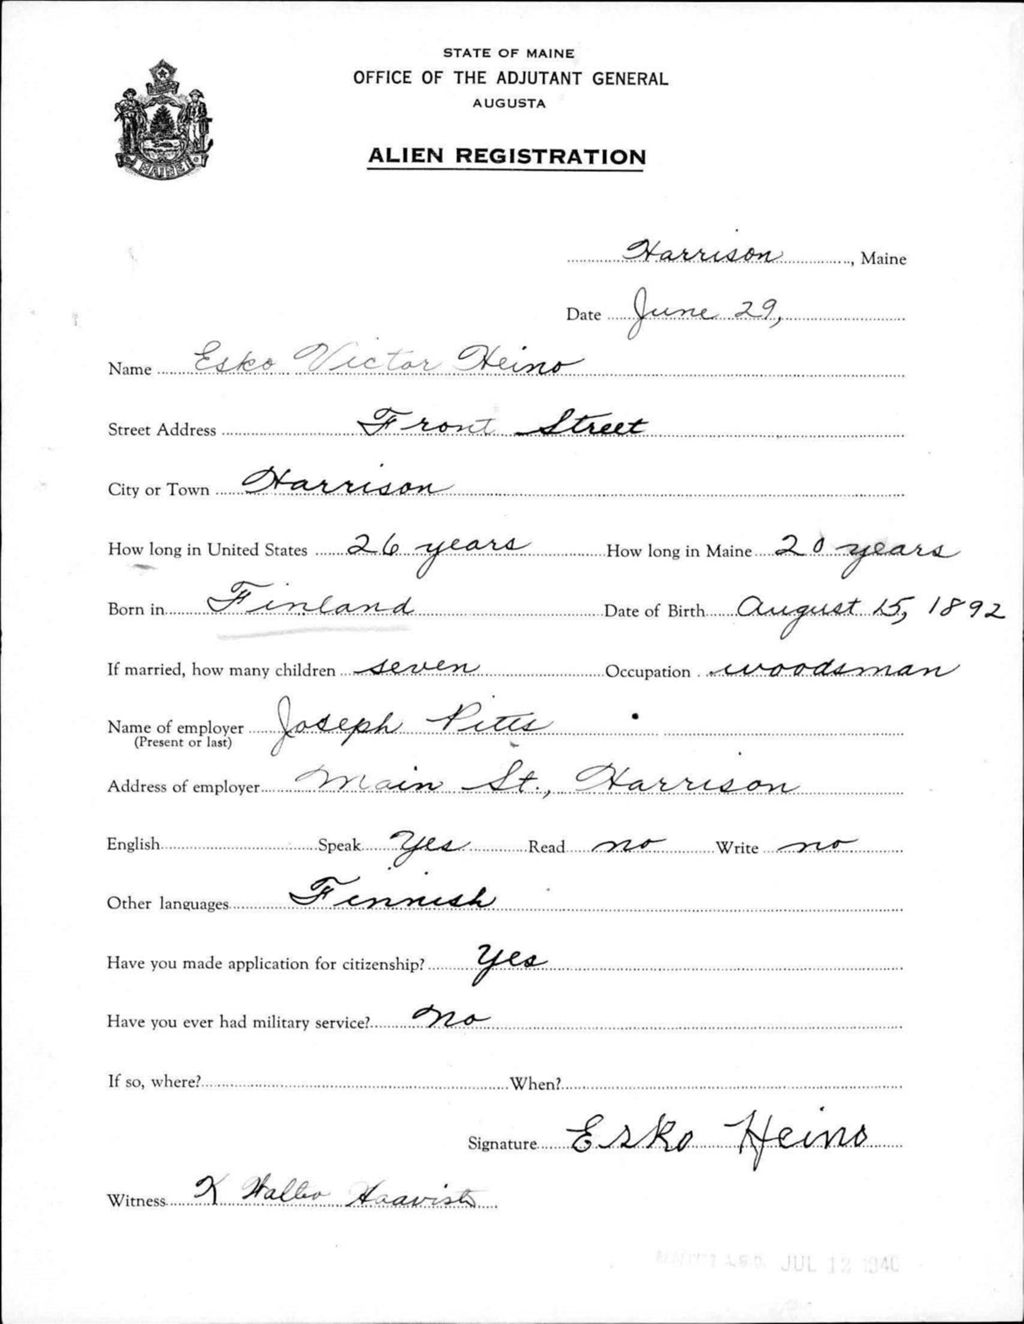 STATE OF MAINE
OFFICE OF THE ADJUTANT GENERAL
AUGUSTA
ALIEN REGISTRATION
MAINE
Harrison, Maine
Date June 29,
Name Esko Victor Heino
Street Address Front Street
City or Town Harrison
How long in United States 26 years How long in Maine 20 years
Born in Finland Date of Birth August 15, 1892
If married, how many children seven Occupation woodsman
Name of employer Joseph Pitts
(Present or last)
Address of employer Main St., Harrison
English Speak Yes Read no Write no
Other languages Finnish
Have you made application for citizenship? Yes
Have you ever had military service? No
If so, where? When?
Signature Esko Heino
Witness K Haavisto
A.G.O. JUL 12 1940